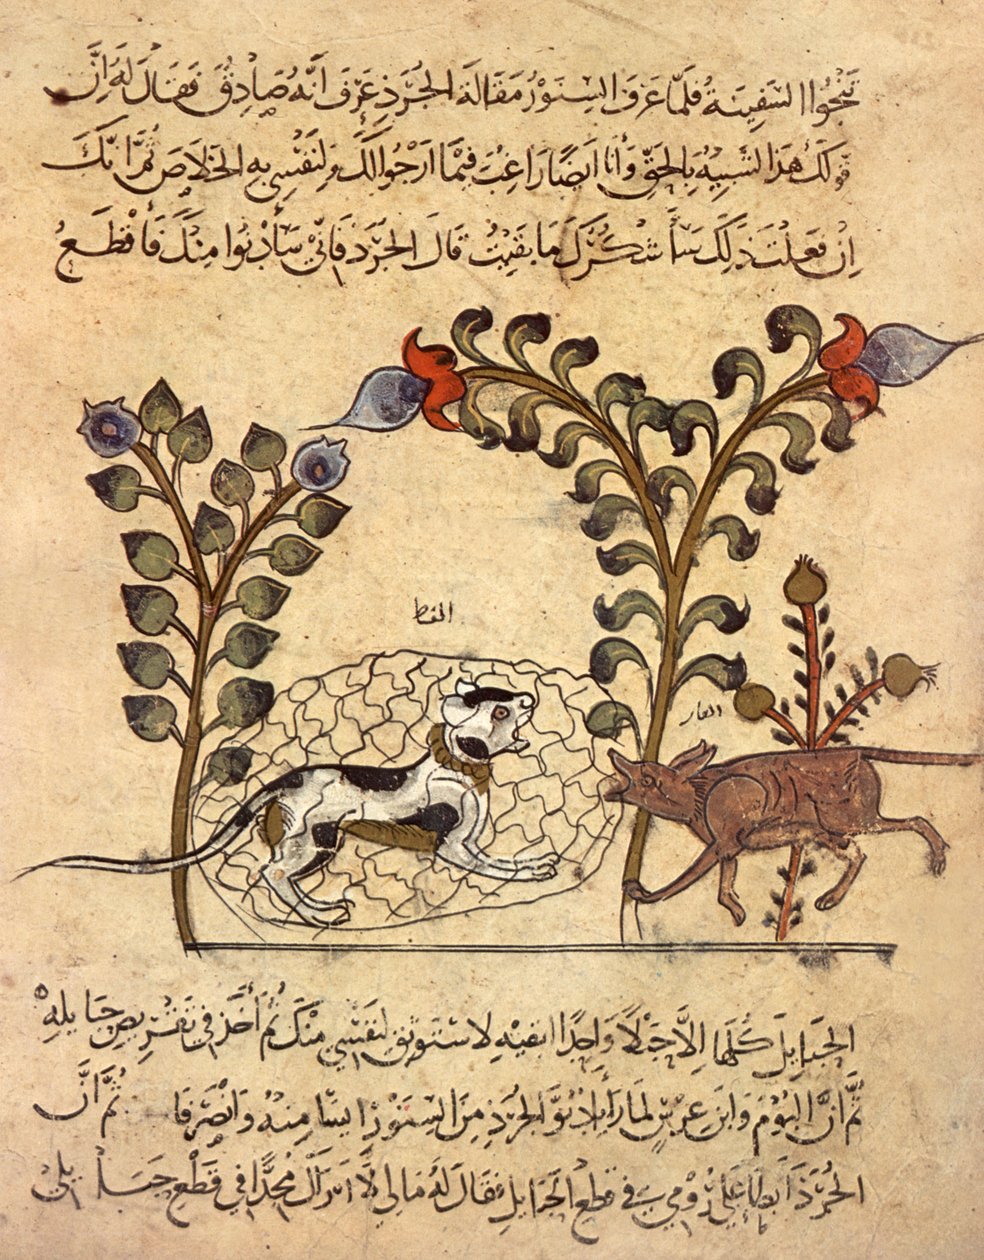 تَنْجُوا السَّفِينَةُ فَلَمَّا عَرَفَ السِّنَّوْرُ مَقَالَةَ الجُرَذِ عَرَفَ أَنَّهُ صَادِقٌ فَقَالَ لَهُ إِنَّ
قَوْلَكَ هَذَا لَشَبِيهٌ بِالحَقِّ وَأَنَا أَيْضًا رَاغِبٌ فِيمَا أَرْجُوا لَكَ وَلِنَفْسِي بِهِ الخَلَاصَ ثُمَّ إِنَّكَ
إِنْ فَعَلْتَ ذَلِكَ سَأَشْكُرُكَ مَا بَقِيتُ قَالَ الجُرَذُ فَإِنِّي سَأَدْنُوا مِنْكَ فَأَقْطَعُ
القط
الفار
الحَبَايِلَ كُلَّهَا إِلَّا حَبْلًا وَاحِدًا أُبْقِيهِ لِأَسْتَوْثِقَ لِنَفْسِي مِنْكَ ثُمَّ أَخَذَ فِي تَقْرِيضِ حَبَايِلِهِ
ثُمَّ أَنَّ البُومَ وَابْنَ عِرْسٍ لَمَّا رَأَيَا دُنُوَّ الجُرَذِ مِنَ السِّنَّوْرِ أَيِسَا مِنْهُ وَانْصَرَفَا ثُمَّ أَنَّ
الجُرَذَ أَبْطَأَ عَلَى رُومِي فِي قَطْعِ الحَبَايِلِ فَقَالَ لَهُ مَالِي لَا أَرَاكَ مُجِدًّا فِي قَطْعِ حَبَايِلِي